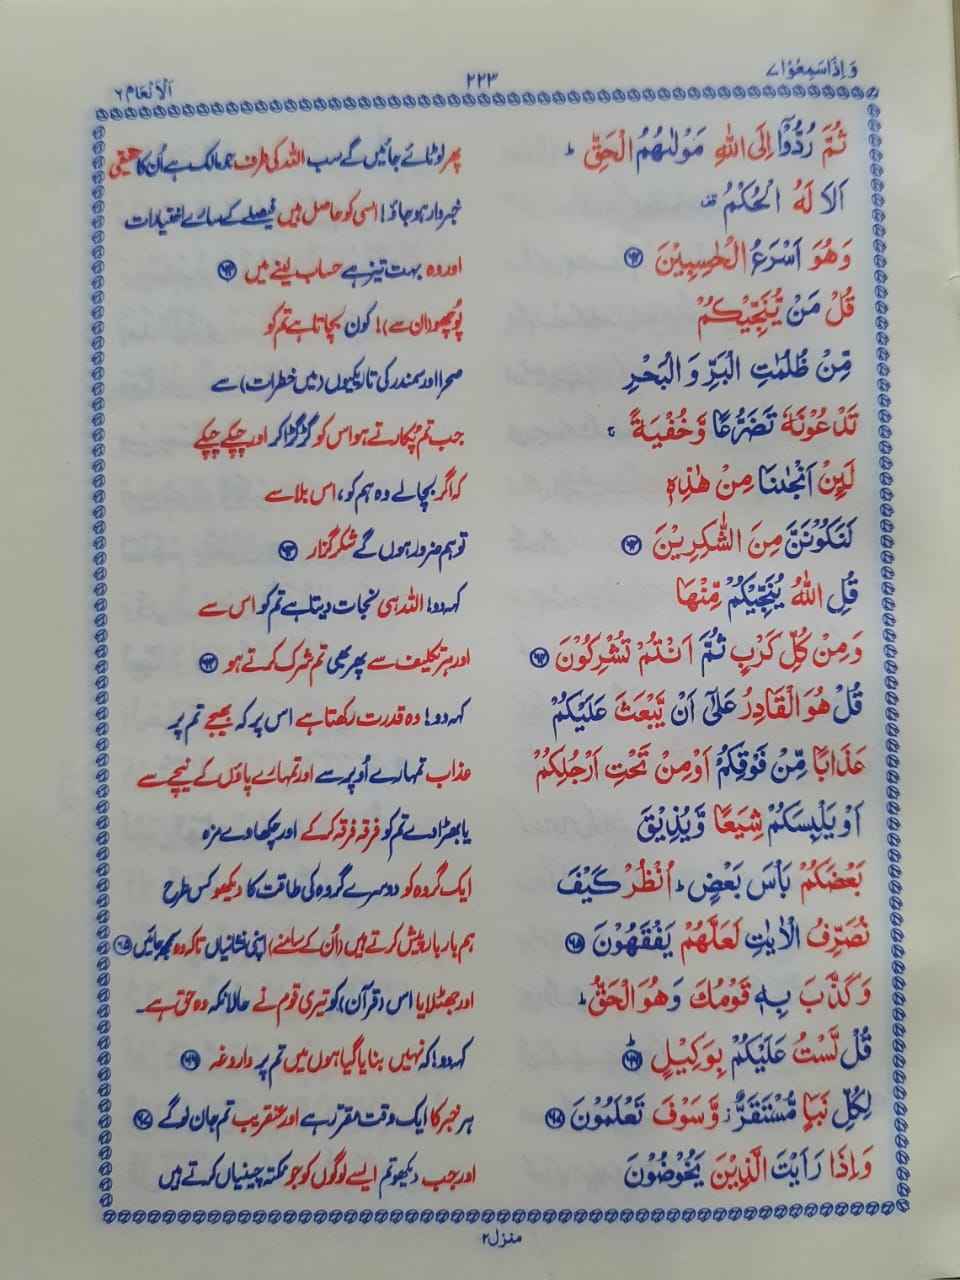 وَاِذَا سَمِعُوْا ۷
۲۲۳
اَلْاَنْعَام ۶
ثُمَّ رُدُّوْٓا اِلَى اللّٰهِ مَوْلٰىهُمُ الْحَقِّ ؕ
پھر لوٹائے جائیں گے سب اللہ کی طرف جو مالک ہے اُن کا حقیقی
اَلَا لَهُ الْحُكْمُ قف
خبردار ہو جاؤ! اسی کو حاصل ہیں فیصلے کے سارے اختیارات
وَهُوَ اَسْرَعُ الْحٰسِبِيْنَ ﴿۶۲﴾
اور وہ بہت تیز ہے حساب لینے میں ﴿۶۲﴾
قُلْ مَنْ يُّنَجِّيْكُمْ
پُوچھو (ان سے)! کون بچاتا ہے تم کو
مِّنْ ظُلُمٰتِ الْبَرِّ وَ الْبَحْرِ
صحرا اور سمندر کی تاریکیوں (میں خطرات) سے
تَدْعُوْنَهٗ تَضَرُّعًا وَّخُفْيَةً ۚ
جب تم پُکارتے ہو اس کو گڑگڑا کر اور چپکے چپکے
لَىِٕنْ اَنْجٰىنَا مِنْ هٰذِهٖ
کہ اگر بچالے وہ ہم کو، اس بلا سے
لَنَكُوْنَنَّ مِنَ الشّٰكِرِيْنَ ﴿۶۳﴾
تو ہم ضرور ہوں گے شکر گزار ﴿۶۳﴾
قُلِ اللّٰهُ يُنَجِّيْكُمْ مِّنْهَا
کہہ دو! اللہ ہی نجات دیتا ہے تم کو اس سے
وَمِنْ كُلِّ كَرْبٍ ثُمَّ اَنْتُمْ تُشْرِكُوْنَ ﴿۶۴﴾
اور ہر تکلیف سے پھر بھی تم شرک کرتے ہو ﴿۶۴﴾
قُلْ هُوَ الْقَادِرُ عَلٰٓى اَنْ يَّبْعَثَ عَلَيْكُمْ
کہہ دو! وہ قدرت رکھتا ہے اس پر کہ بھیجے تم پر
عَذَابًا مِّنْ فَوْقِكُمْ اَوْ مِنْ تَحْتِ اَرْجُلِكُمْ
عذاب تمہارے اُوپر سے اور تمہارے پاؤں کے نیچے سے
اَوْ يَلْبِسَكُمْ شِيَعًا وَّيُذِيْقَ
یا بھڑا دے تم کو فرقہ فرقہ کر کے اور چکھا دے مزہ
بَعْضَكُمْ بَاْسَ بَعْضٍ ؕ اُنْظُرْ كَيْفَ
ایک گروہ کو دوسرے گروہ کی طاقت کا دیکھو کس طرح
نُصَرِّفُ الْاٰيٰتِ لَعَلَّهُمْ يَفْقَهُوْنَ ﴿۶۵﴾
ہم بار بار پیش کرتے ہیں (اُن کے سامنے) اپنی نشانیاں تاکہ وہ سمجھ جائیں ﴿۶۵﴾
وَكَذَّبَ بِهٖ قَوْمُكَ وَهُوَ الْحَقُّ ؕ
اور جھٹلایا اس (قرآن) کو تیری قوم نے حالانکہ وہ حق ہے۔
قُلْ لَّسْتُ عَلَيْكُمْ بِوَكِيْلٍ ﴿۶۶﴾
کہہ دو! کہ نہیں بنایا گیا ہوں میں تم پر داروغہ ﴿۶۶﴾
لِكُلِّ نَبَاٍ مُّسْتَقَرٌّ ز وَّسَوْفَ تَعْلَمُوْنَ ﴿۶۷﴾
ہر خبر کا ایک وقت مقرر ہے اور عنقریب تم جان لو گے ﴿۶۷﴾
وَاِذَا رَاَيْتَ الَّذِيْنَ يَخُوْضُوْنَ
اور جب دیکھو تم ایسے لوگوں کو جو نکتہ چینیاں کرتے ہیں
منزل ۲